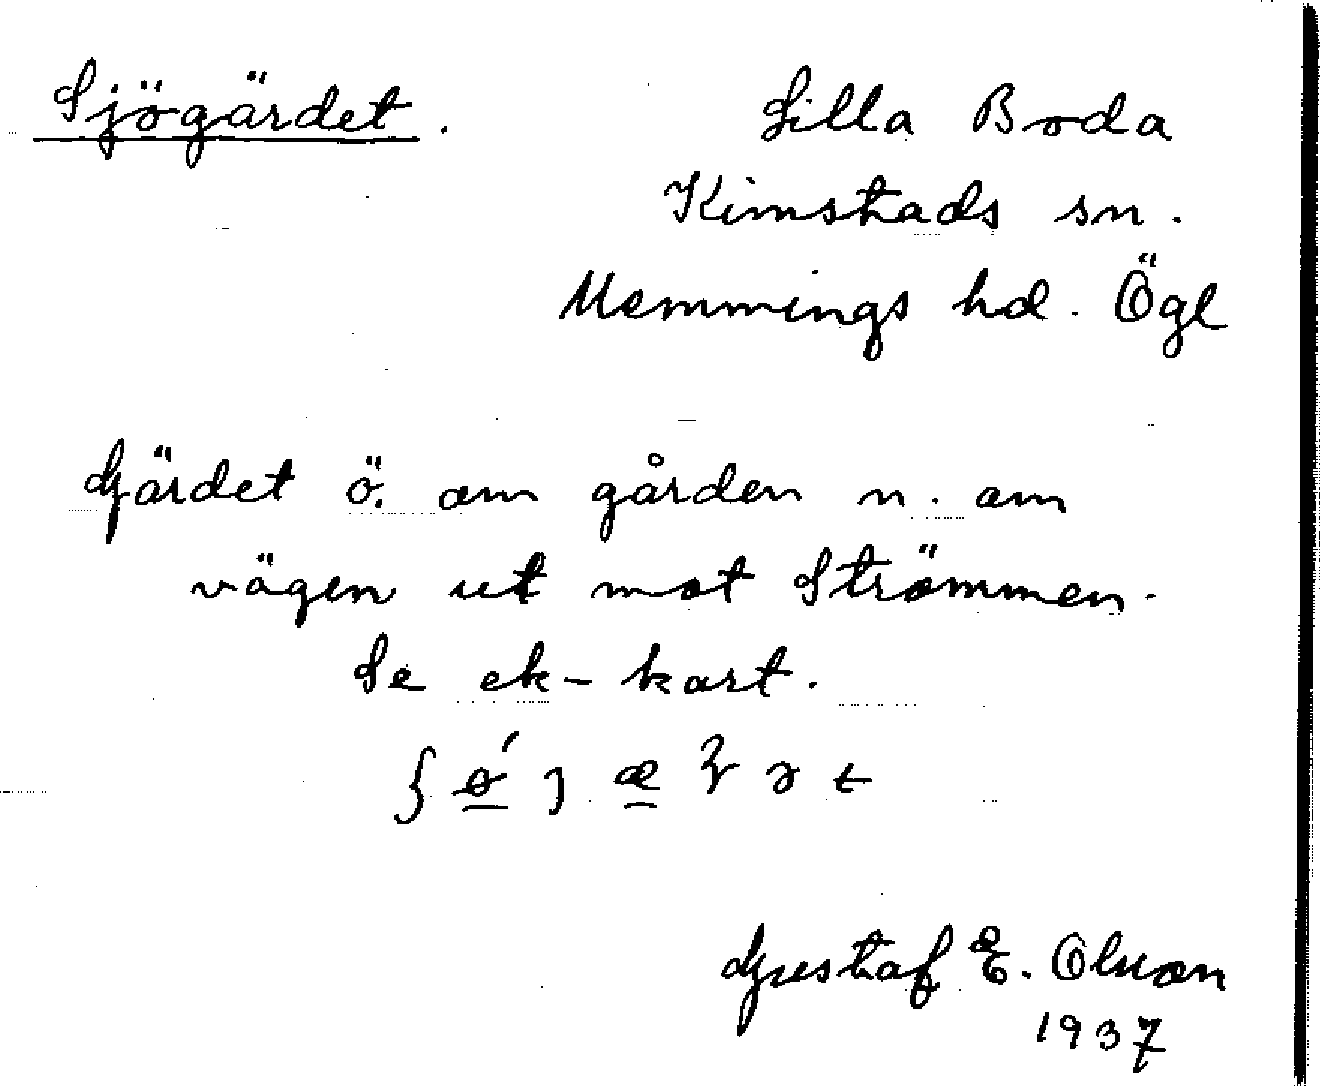 Sjögärdet.
Lilla Boda
Kimstads sn.
Memmings hd. Ögl
Gärdet ö. om gården n. om
vägen ut mot Strömmen.
Se ek-kart.
Gustaf E. Olsson
1937